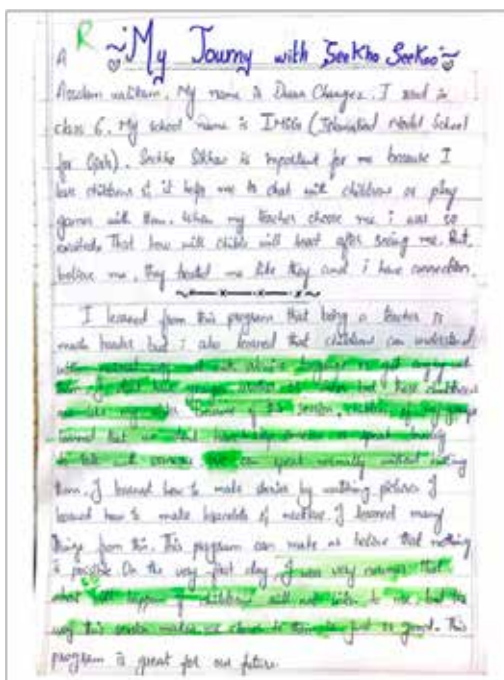 A R My Journy with Seekho Seekao
Assalam walikum. My name is Duaa Changez. I read in
class 6. My school name is IMSG (Islamabad Model School
for Girls). Seekho Sikhao is important for me because I
love childrens & it help me to chat with childrens or play
games with them. When my teacher choose me i was so
excited. That how will childs will treat after seeing me. But
believe me, they treated me like they and i have connection.
I learned from this program that being a teacher is
much harder but i also learned that childrens can understand
them. I don't have younger but these childrens
are like my Because of this session, childrens of my
learned that we don't have to speak loudly
to talk with someone we can speak normally without
them. I learned how to make stories by watching pictures. I
learned how to make bracelets of necklace. I learned many
things from this. This program can make us believe that nothing
is possible. On the very first day, I was very nervous that
what will happen if childrens will not listen to me, but the
way this session makes me closer to them is just so good. This
program is great for our future.